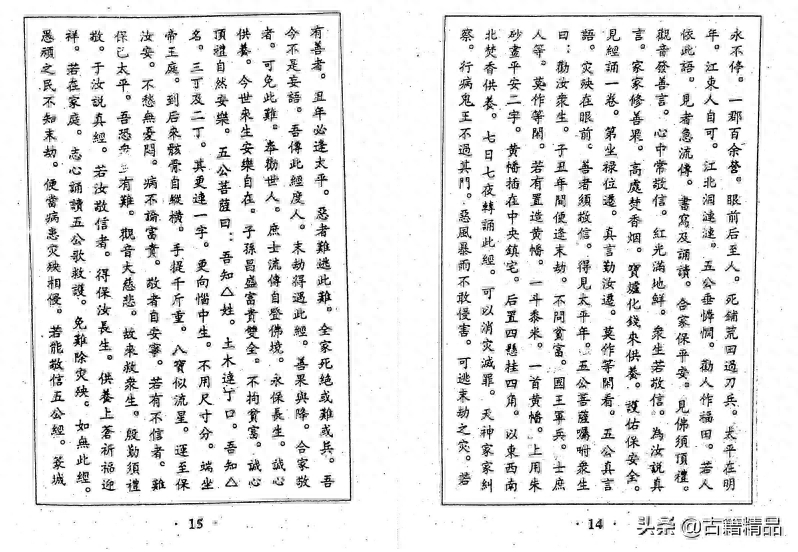 永不停。一那百余營。眼前后至人。死鋪荒田過刀兵。太平在明
年。江東人自可。江北淚漣漣。五公垂憐憫。勸人作福田。若人
依此語。見者急流傳。書寫及誦讀。合家保平安。見佛須頂禮。
觀音發善言。心中常敬信。紅光滿地鮮。衆生若敬信。為汝説真
言。家家修善果。高處焚香烟。寶爐化錢來供養。護佑保安全。
見經誦一卷。第坐禄位遷。真言勤汝遷。莫作等閑看。五公真言
語。灾殃在眼前。善者須敬信。得見太平年。五公菩薩囑咐衆生
曰：勸汝衆生。子丑年間便逢末劫。不問貧富。國王軍兵。士庶
人等。莫作等閑。若有置造黄幡。一斗黍米。一首黄幡。上用朱
砂盡平安二字。黄幡插在中央鎮宅。后置四懸挂四角。以東西南
北焚香供養。七日七夜轉誦此經。可以消灾滅罪。天神家家糾
察。行病鬼王不過其門。惡風暴雨不敢侵害。可逃末劫之灾。若
·14·
有善者。丑年必逢太平。惡者難逃此難。全家死絶或難或兵。吾
今不是妄語。吾傳此經度人。末劫得遇此經。善果與降。合家敬
者。可免此難。奉勸世人。庶士流傳自登佛境。永保長生。誠心
供養。今世來生安樂自在。子孫昌盛富貴雙全。不拘貧富。誠心
頂禮自然安樂。五公菩薩曰：吾知△姓。土木達丁口。吾知△
名。三丁及二丁。其更連一字。更向惱中生。不用尺寸分。端坐
帝王庭。到后來骸骨自縱橫。手提千斤重。八寶似流星。運至保
汝安。不愁無憂悶。病不論富貴。敬者自安寧。若有不信者。難
保己太平。吾恐衆生有難。觀音大慈悲。故來救衆生。殷勤須禮
敬。于汝説真經。若汝敬信者。得保汝長生。供養上蒼祈福迎
祥。若在家庭。志心誦讀五公歌救護。免難除灾殃。如無此經。
愚頑之民不知末劫。便當病患灾殃相侵。若能敬信五公經。蒙城
·15·
头条 @古籍精品